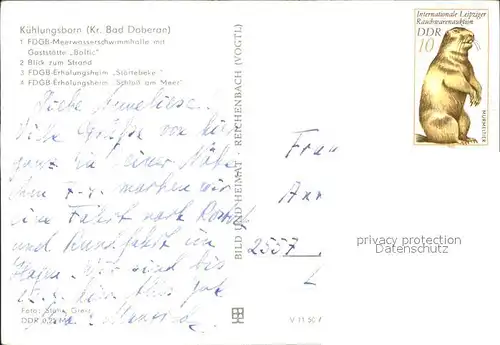 Kühlungsborn (Kr. Bad Doberan)
1 FDGB-Meerwasserschwimmhalle mit
Gaststätte „Baltic"
2 Blick zum Strand
3 FDGB-Erholungsheim „Störtebeker"
4 FDGB-Erholungsheim „Schloß am Meer"
Liebe Anneliese.
Viele Grüße von hier
ganz in deiner Nähe
machen wir
eine Fahrt nach Rostock
und Rundfahrt im
Hafen. Wir sind bis
hier. Alles gute
Foto: Stelte, Greiz
DDR 0,25 M
BILD UND HEIMAT REICHENBACH (VOGTL)
V 11 50 /
Internationale Leipziger
Rauchwarenauktion
DDR
10
MURMELTIER
Frau
2557
privacy protection
Datenschutz